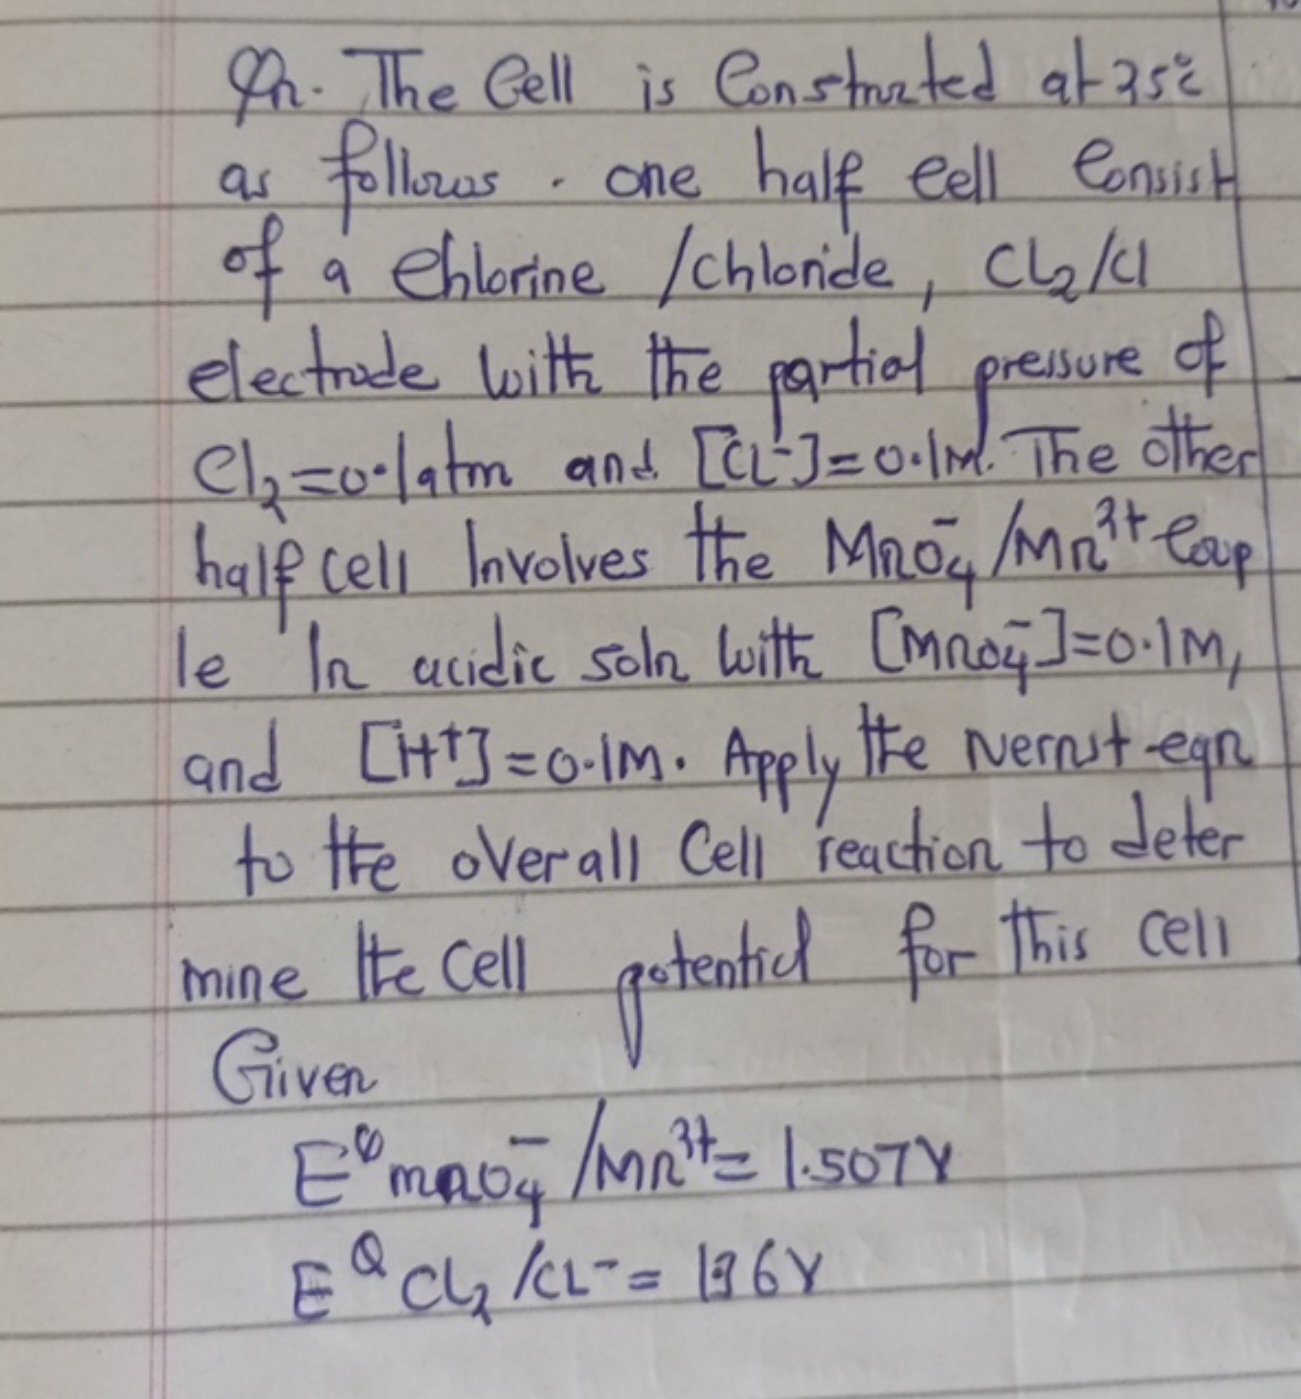 Qn. The Cell is Constructed at 25°c
as follows. one half cell Consist
of a Chlorine /chloride, Cl₂/Cl
electrode with the partial pressure of
Cl₂=0.1atm and [Cl⁻]=0.1M. The other
half cell Involves the MnO₄⁻/Mn²⁺ Coup
le In acidic soln with [MnO₄⁻]=0.1M,
and [H⁺]=0.1M. Apply the Nernst eqn
to the overall Cell reaction to deter
mine the Cell potential for this cell
Given
E⁰mnO₄⁻/Mn²⁺= 1.507V
E⁰Cl₂/Cl⁻= 1.36V